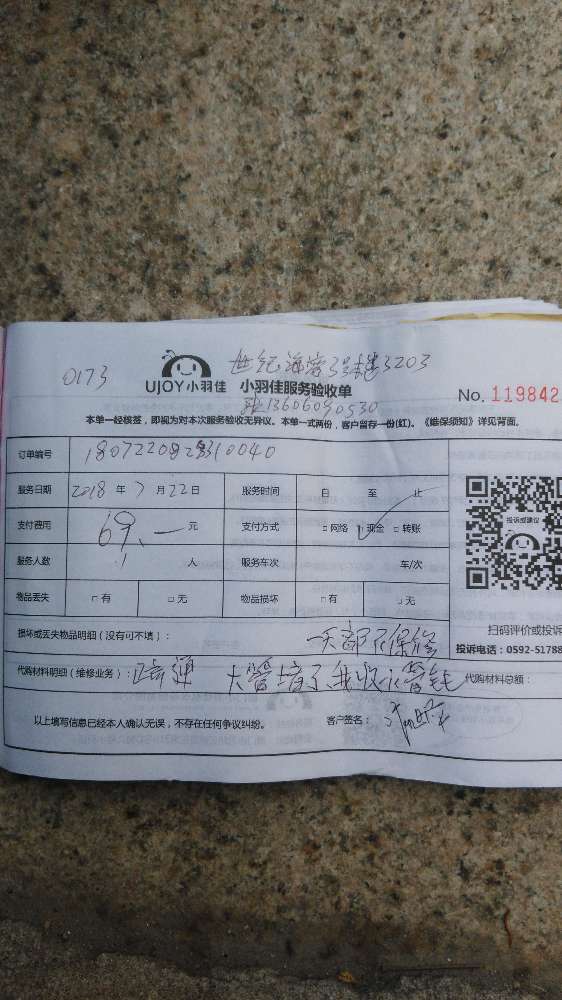 0173
世纪海湾3号楼3203
UJOY 小羽佳 小羽佳服务验收单
13606090530
No. 119842
本单一经核签，即视为对本次服务验收无异议。本单一式两份，客户留存一份(红)。《维保须知》详见背面。
订单编号
服务日期 2018 年 7 月 22 日 服务时间 自 至 止
投诉或建议
支付费用 69.— 元 支付方式 □网络 ☑现金 □转账
服务人数 1 人 服务车次 车/次
物品丢失 □有 □无 物品损坏 □有 □无
扫码评价或投诉
损坏或丢失物品明细（没有可不填）： 一天都不保修
投诉电话：0592-51788
代购材料明细（维修业务）： 疏通 大管堵了我收小管钱 代购材料总额：
以上填写信息已经本人确认无误，不存在任何争议纠纷。 客户签名：